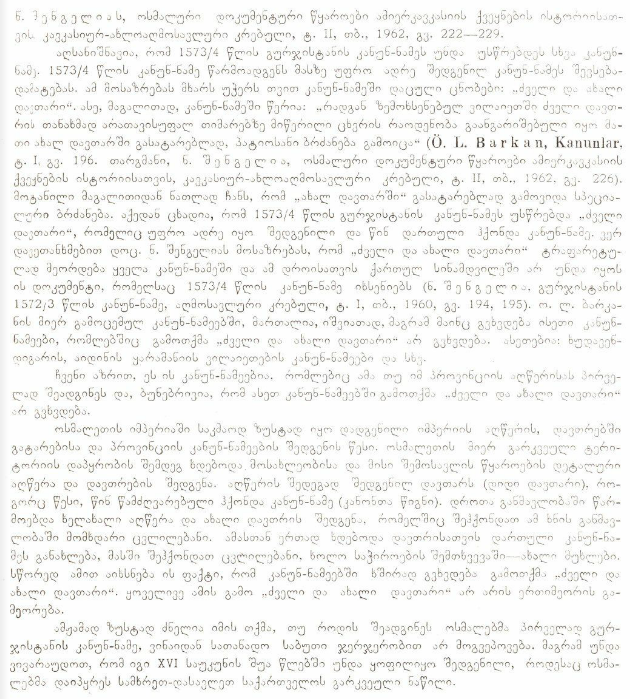 ნ. შენგელიას, ოსმალური დოკუმენტური წყაროები ამიერკავკასიის ქვეყნების ისტორიისათ-
ვის. კავკასიურ-ახლოაღმოსავლური კრებული, ტ. II, თბ., 1962, გვ. 222—229.
აღსანიშნავია, რომ 1573/4 წლის გურჯისტანის კანუნ-ნამეს უნდა უსწრებდეს სხვა კანუნ-
ნამე. 1573/4 წლის კანუნ-ნამე წარმოადგენს მასზე უფრო ადრე შედგენილ კანუნ-ნამეს შევსება-
დამატებას. ამ მოსაზრებას მხარს უჭერს თვით კანუნ-ნამეში დაცული ცნობები: „ძველი და ახალი
დავთარი“. ასე, მაგალითად, კანუნ-ნამეში წერია: „რადგან ზემოხსენებულ ვილაიეთში ძველი დავთ-
რის თანახმად არათავისუფალ თიმარებზე მიწერილი ცხვრის რაოდენობა გაანგარიშებული იყო მა-
თი ახალ დავთარში გასატარებლად, პატიოსანი ბრძანება გამოიცა“ (Ö. L. Barkan, Kanunlar,
ტ. I, გვ. 196. თარგმანი, ნ. შენგელია, ოსმალური დოკუმენტური წყაროები ამიერკავკასიის
ქვეყნების ისტორიისათვის, კავკასიურ-ახლოაღმოსავლური კრებული, ტ. II, თბ., 1962, გვ. 226).
მოტანილი მაგალითიდან ნათლად ჩანს, რომ „ახალ დავთარში“ გასატარებლად გამოვიდა სპეცია-
ლური ბრძანება. აქედან ცხადია, რომ 1573/4 წლის გურჯისტანის კანუნ-ნამეს უსწრებდა „ძველი
დავთარი“, რომელიც უფრო ადრე იყო შედგენილი და წინ დართული ჰქონდა კანუნ-ნამე. ვერ
დავეთანხმებით დოც. ნ. შენგელიას მოსაზრებას, რომ „ძველი და ახალი დავთარი“ ტრაფარეტუ-
ლად მეორდება ყველა კანუნ-ნამეში და ამ დროისათვის ქართულ სინამდვილეში არ უნდა იყოს
ის დოკუმენტი, რომელსაც 1573/4 წლის კანუნ-ნამე იხსენიებს (ნ. შენგელია. გურჯისტანის
1572/3 წლის კანუნ-ნამე, აღმოსავლური კრებული, ტ. I, თბ., 1960, გვ. 194, 195). ო. ლ. ბარკა-
ნის მიერ გამოცემულ კანუნ-ნამეებში, მართალია, იშვიათად, მაგრამ მაინც გვხვდება ისეთი კანუნ-
ნამეები, რომლებშიც გამოთქმა „ძველი და ახალი დავთარი“ არ გვხვდება. ასეთებია: ხუდავენ-
დიგარის, აიდინის ყარამანიის ვილაიეთების კანუნ-ნამეები და სხვ.
ჩვენი აზრით, ეს ის კანუნ-ნამეებია, რომლებიც ამა თუ იმ პროვინციის აღწერისას პირვე-
ლად შეადგინეს და, ბუნებრივია, რომ ასეთ კანუნ-ნამეებში გამოთქმა „ძველი და ახალი დავთარი“
არ გვხვდება.
ოსმალეთის იმპერიაში საკმაოდ ზუსტად იყო დადგენილი იმპერიის აღწერის, დავთრებში
გატარებისა და პროვინციის კანუნ-ნამეების შედგენის წესი. ოსმალეთის მიერ გარკვეული ტერი-
ტორიის დაპყრობის შემდეგ ხდებოდა მოსახლეობისა და მისი შემოსავლის წყაროების დეტალური
აღწერა და დავთრების შედგენა. აღწერის შედეგად შედგენილ დავთარს (დიდი დავთარი), რო-
გორც წესი, წინ წამძღვარებული ჰქონდა კანუნ-ნამე (კანონთა წიგნი). დროთა განმავლობაში წარ-
მოებდა ხელახალი აღწერა და ახალი დავთრის შედგენა, რომელშიც შეჰქონდათ ამ ხნის განმავ-
ლობაში მომხდარი ცვლილებანი. ამასთან ერთად ხდებოდა დავთრისათვის დართული კანუნ-ნა-
მეს განახლება, მასში შეჰქონდათ ცვლილებანი, ხოლო საჭიროების შემთხვევაში—ახალი მუხლები.
სწორედ ამით აიხსნება ის ფაქტი, რომ კანუნ-ნამეებში ხშირად გვხვდება გამოთქმა „ძველი და
ახალი დავთარი“. ყოველივე ამის გამო „ძველი და ახალი დავთარი“ არ არის ერთიმეორის გა-
მეორება.
ამჟამად ზუსტად ძნელია იმის თქმა, თუ როდის შეადგინეს ოსმალებმა პირველად გურ-
ჯისტანის კანუნ-ნამე, ვინაიდან სათანადო საბუთი ჯერჯერობით არ მოგვეპოვება. მაგრამ უნდა
ვივარაუდოთ, რომ იგი XVI საუკუნის შუა წლებში უნდა ყოფილიყო შედგენილი, როდესაც ოსმა-
ლებმა დაიპყრეს სამხრეთ-დასავლეთ საქართველოს გარკვეული ნაწილი.